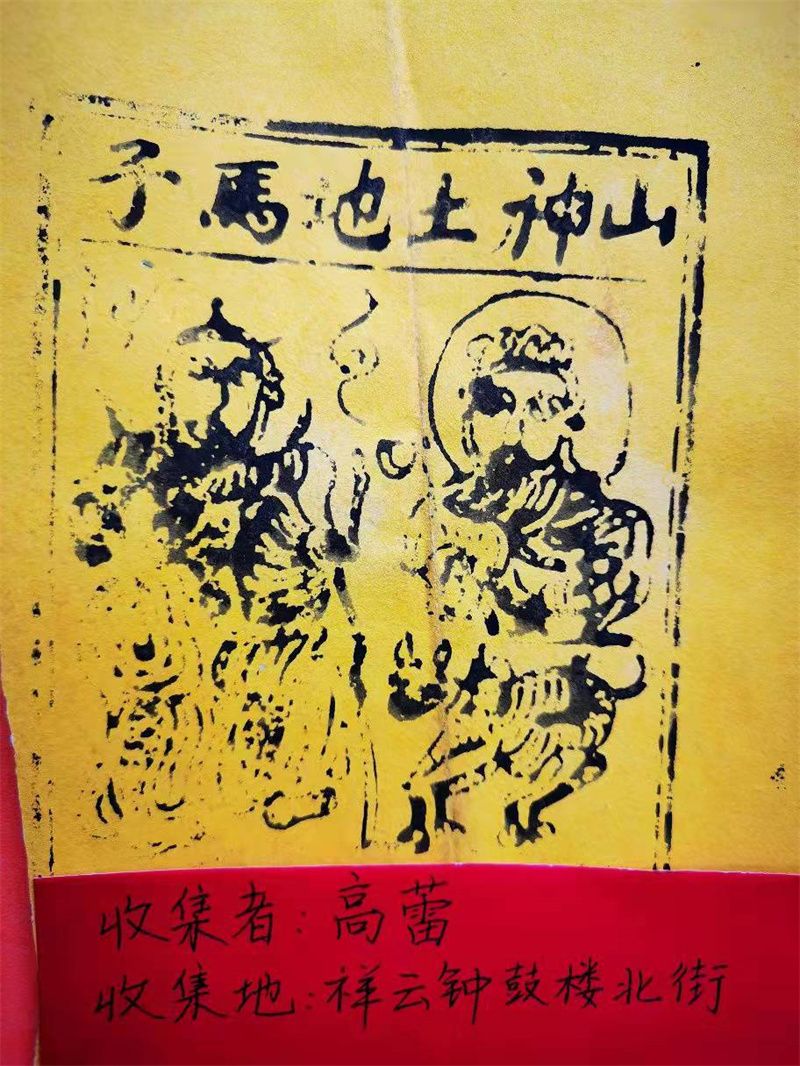 山神土地馬子
收集者:高蕾
收集地:祥云钟鼓楼北街